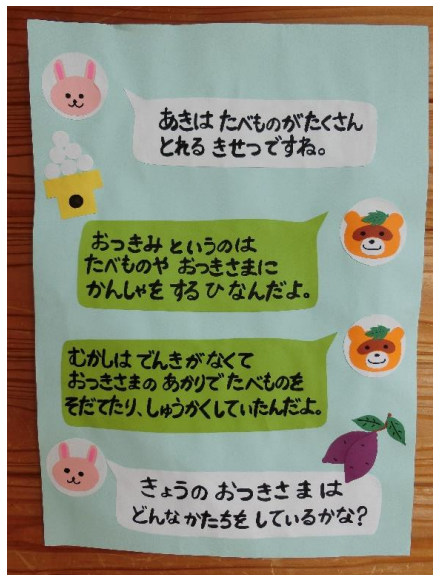 あきは たべものがたくさん
とれる きせつですね。
おつきみ というのは
たべものや おつきさまに
かんしゃを する ひ なんだよ。
むかしは でんきが なくて
おつきさまの あかりで たべものを
そだてたり、しゅうかくしていたんだよ。
きょうの おつきさま は
どんな かたちを しているかな?